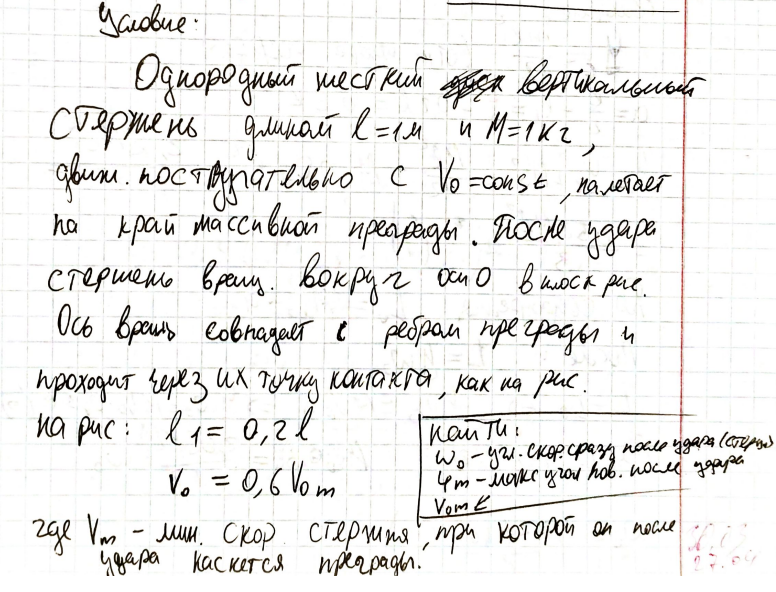 Условие:
Однородный жесткий вертикальный
стержень длиной l = 1м и M = 1кг,
движ. поступательно с V₀ = const, налетает
на край массивной преграды. После удара
стержень вращ. вокруг оси О в плоск рис.
Ось вращ совпадает с ребром преграды и
проходит через их точку контакта, как на рис.
на рис: l₁ = 0,2l
V₀ = 0,6V₀m
Найти:
ω₀ - угл. скор. сразу после удара (стержня)
φm - макс угол пов. после удара
V₀m
где Vm - мин. скор. стержня, при которой он после
удара каснется преграды.